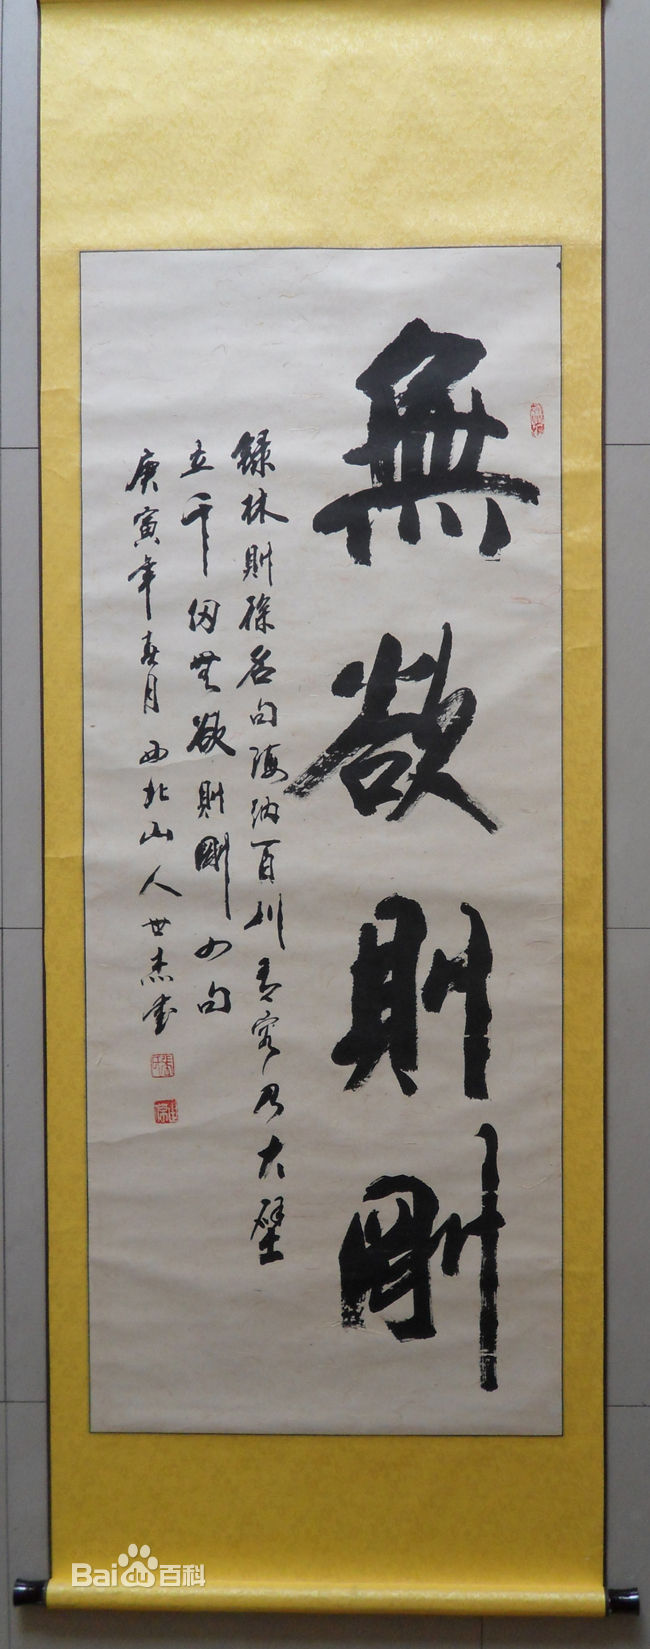 無欲則剛
錄林則徐名句海納百川有容乃大壁
立千仞無欲則剛 句
庚寅年春月西北山人世杰書
Bai du 百科